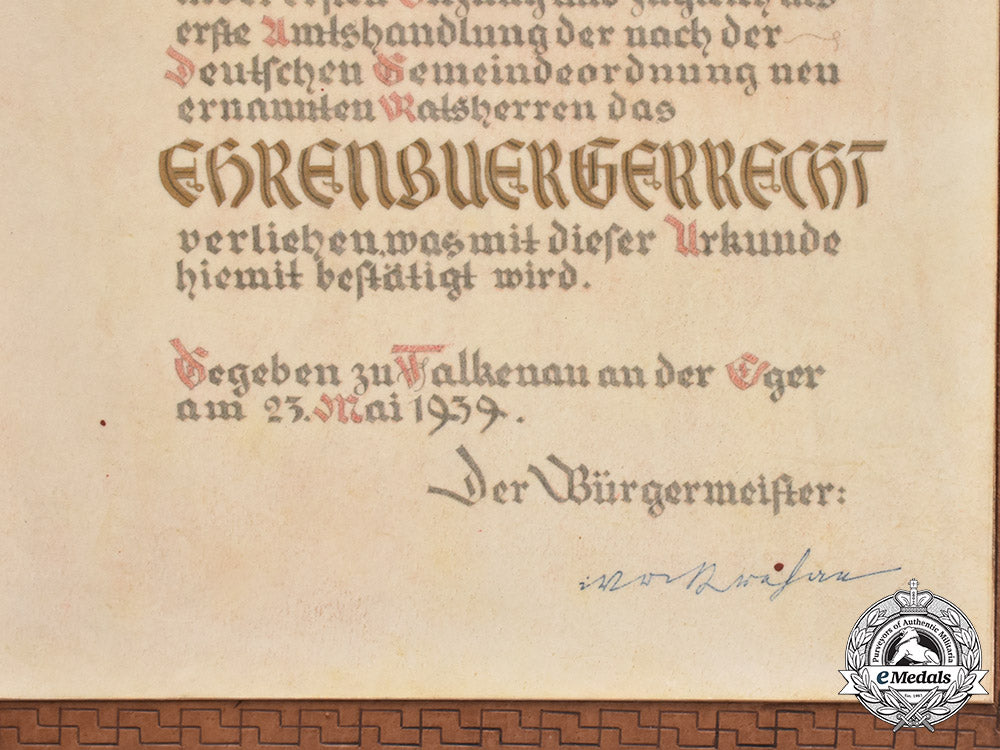 in der ersten Sitzung und zugleich als
erſte Amtshandlung der nach der
Deutſchen Gemeindeordnung neu
ernannten Ratsherren das
EHRENBUERGERRECHT
verliehen, was mit dieſer Urkunde
hiemit beſtätigt wird.
Gegeben zu Falkenau an der Eger
am 23. Mai 1939.
Der Bürgermeiſter:
Purveyors of Authentic Militaria
eMedals